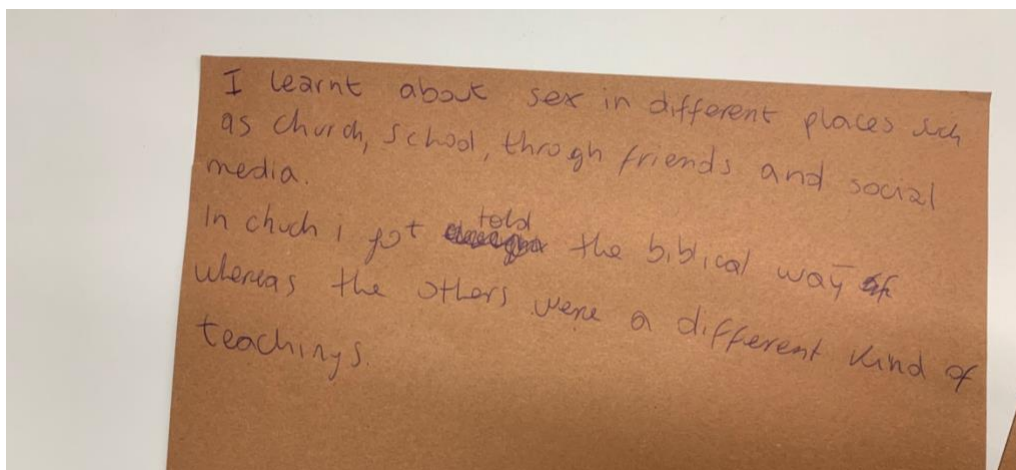 I learnt about sex in different places such
as church, school, throgh friends and social
media.
In chuch i got told the biblical way
whereas the others were a different kind of
teachings.